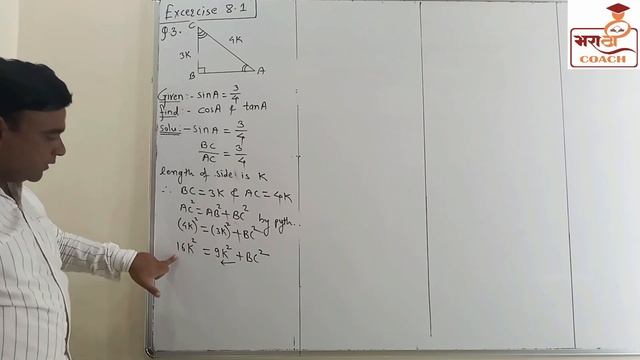 Excercise 8.1
Q.3.
C
3K
4K
B
A
Given:- sinA = 3/4
find:- cosA & tanA
Solu:- sinA = 3/4
BC/AC = 3/4
length of side is K
∴ BC = 3K & AC = 4K
AC² = AB² + BC² by pyth...
(4K)² = (3K)² + BC²
16K² = 9K² + BC²
मराठी
COACH